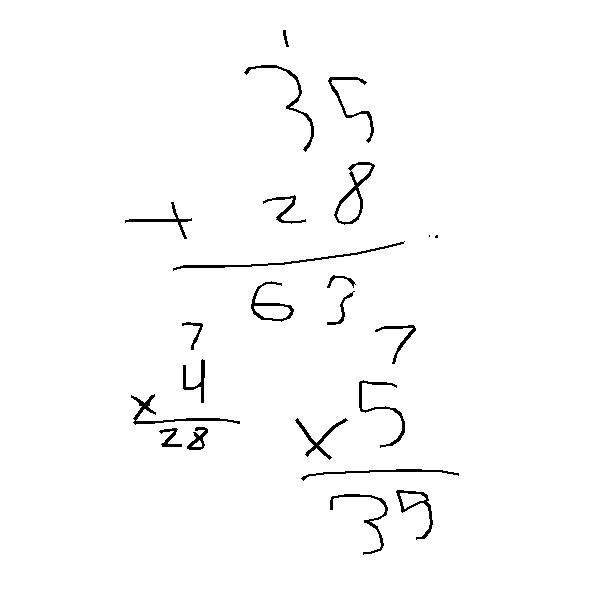 1
35
+ 28
63
7
x 4
28
7
x 5
35